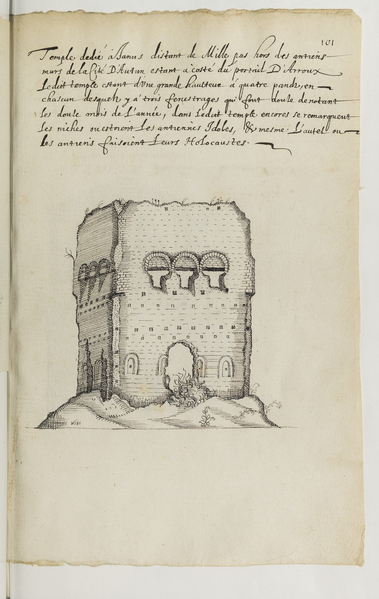 101
Temple dedié à Janus distant de Mille pas hors des antiens
murs de la Cité D'Autun estant à costé du portail D'Arroux
Ledit temple estant d'vne grande haulteur à quatre pandz, en
chascun desquelz y à trois fenestrages qui font douze denotant
les douze mois de L'année, dans ledit temple encores se remarquent
les niches ou estoient les antiennes Idoles, & mesme L'autel ou
les antiens faisoient leurs Holocaustes.